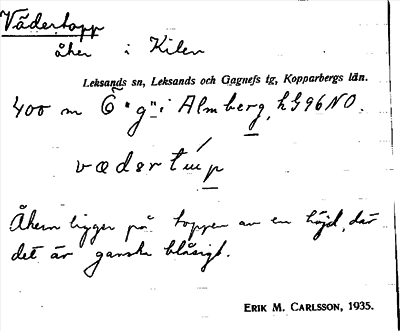 Vädertopp
åker i Kilen
Leksands sn, Leksands och Gagnefs tg, Kopparbergs län.
400 m Ö "g" i Almberg, h 496 NO.
Åkern ligger på toppen av en höjd, där
det är ganska blåsigt.
ERIK M. CARLSSON, 1935.